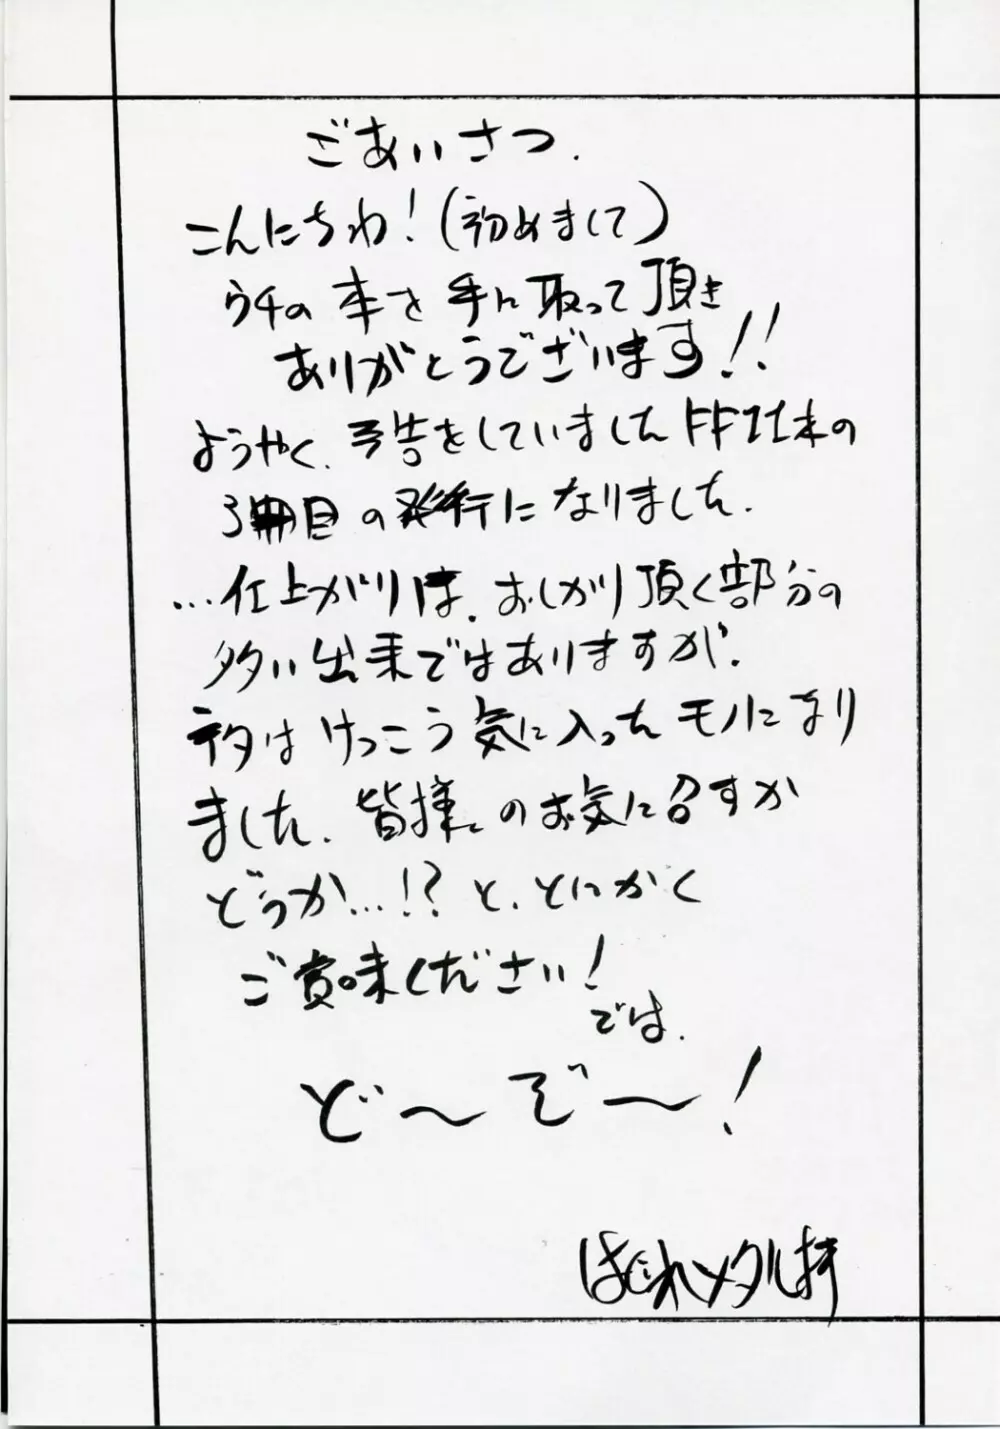 ごあいさつ.
こんにちわ!(初めまして)
ウチの本を手に取って頂き
ありがとうございます!!
ようやく、予告をしていましたFFⅦ本の
3冊目の発行になりました.
…仕上がりは、おしかり頂く部分の
多い出来ではありますが、
ネタはけっこう気に入ったモノになり
ました、皆様のお気に召すか
どうか…!?と、とにかく
ご賞味ください!
では、
ど〜ぞ〜!
はじれメタル